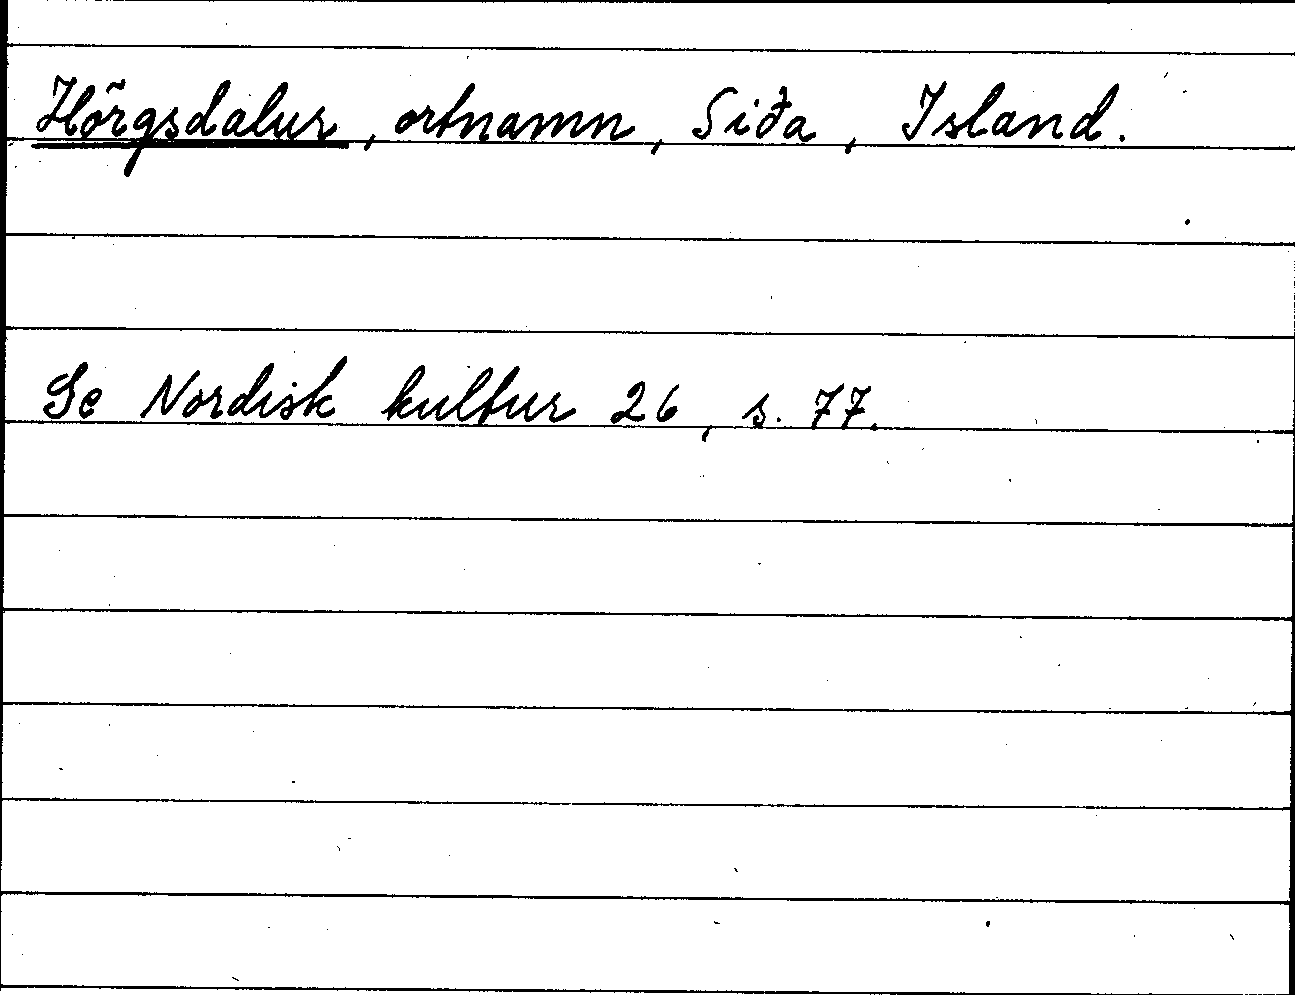 Hörgsdalur, ortnamn, Siða, Island.
Se Nordisk kultur 26, s. 77.